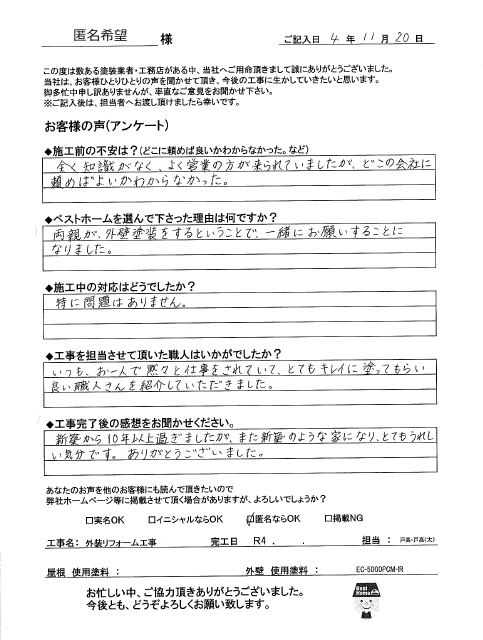 匿名希望 様
ご記入日 4 年 11 月 20 日
この度は数ある塗装業者・工務店がある中、当社へご用命頂きまして誠にありがとうございました。
当社は、お客様ひとりひとりの声を聞かせて頂き、今後の工事に生かしていきたいと思います。
御多忙中申し訳ありませんが、率直なご意見をお聞かせ下さい。
※ご記入後は、担当者へお渡し頂けましたら幸いです。
お客様の声(アンケート)
◆施工前の不安は?(どこに頼めば良いかわからなかった。など)
全く知識がなく、よく営業の方が来られていましたが、どこの会社に
頼めばよいかわからなかった。
◆ベストホームを選んで下さった理由は何ですか?
両親が、外壁塗装をするということで、一緒にお願いすることに
なりました。
◆施工中の対応はどうでしたか?
特に問題はありません。
◆工事を担当させて頂いた職人はいかがでしたか?
いつも、お一人で黙々と仕事をされていて、とてもキレイに塗ってもらい
良い職人さんを紹介していただきました。
◆工事完了後の感想をお聞かせください。
新築から10年以上過ぎましたが、また新築のような家になり、とてもうれし
い気分です。ありがとうございました。
あなたのお声を他のお客様にも読んで頂きたいので
弊社ホームページ等に掲載させて頂く場合がありますが、よろしいでしょうか?
□実名OK □イニシャルならOK ☑匿名ならOK □掲載NG
工事名: 外装リフォーム工事 完工日 R4 . . 担当: 戸高・戸高(大)
屋根 使用塗料: 外壁 使用塗料: EC-5000PCM-IR
お忙しい中、ご協力頂きありがとうございました。
今後とも、どうぞよろしくお願い致します。
Best Home